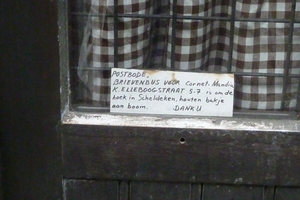 POSTBODE,
BRIEVENBUS VOOR Cornet. Mandra,
K. ELLEBOOGSTRAAT 5-7 is om de
hoek in Scheldeken, houten bakje
aan boom. DANK U